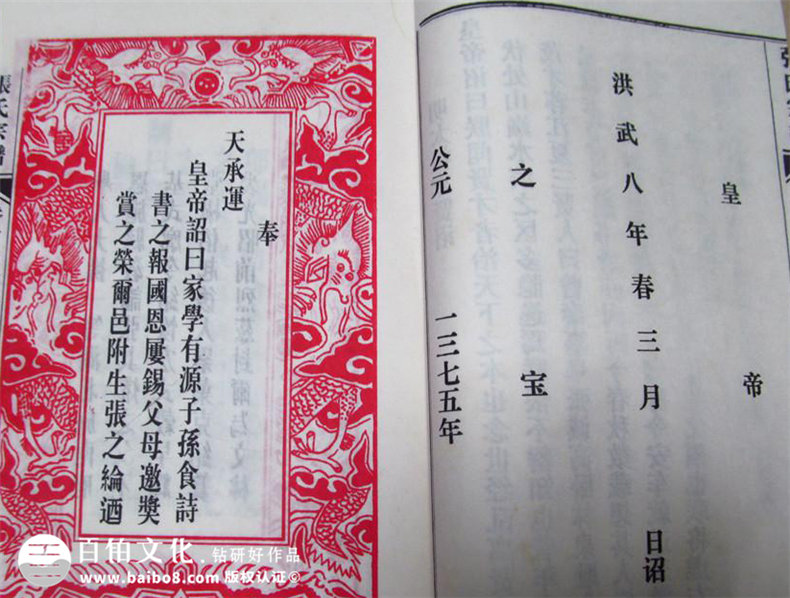 皇 帝
洪武八年春三月 日诏
之 宝
公元 一三七五年
奉
天承運
皇帝詔曰家學有源子孫食詩
書之報國恩屢錫父母邀獎
賞之榮爾邑附生張之綸
張氏宗譜
百伯文化 钻研好作品
www.baibo8.com 版权认证©